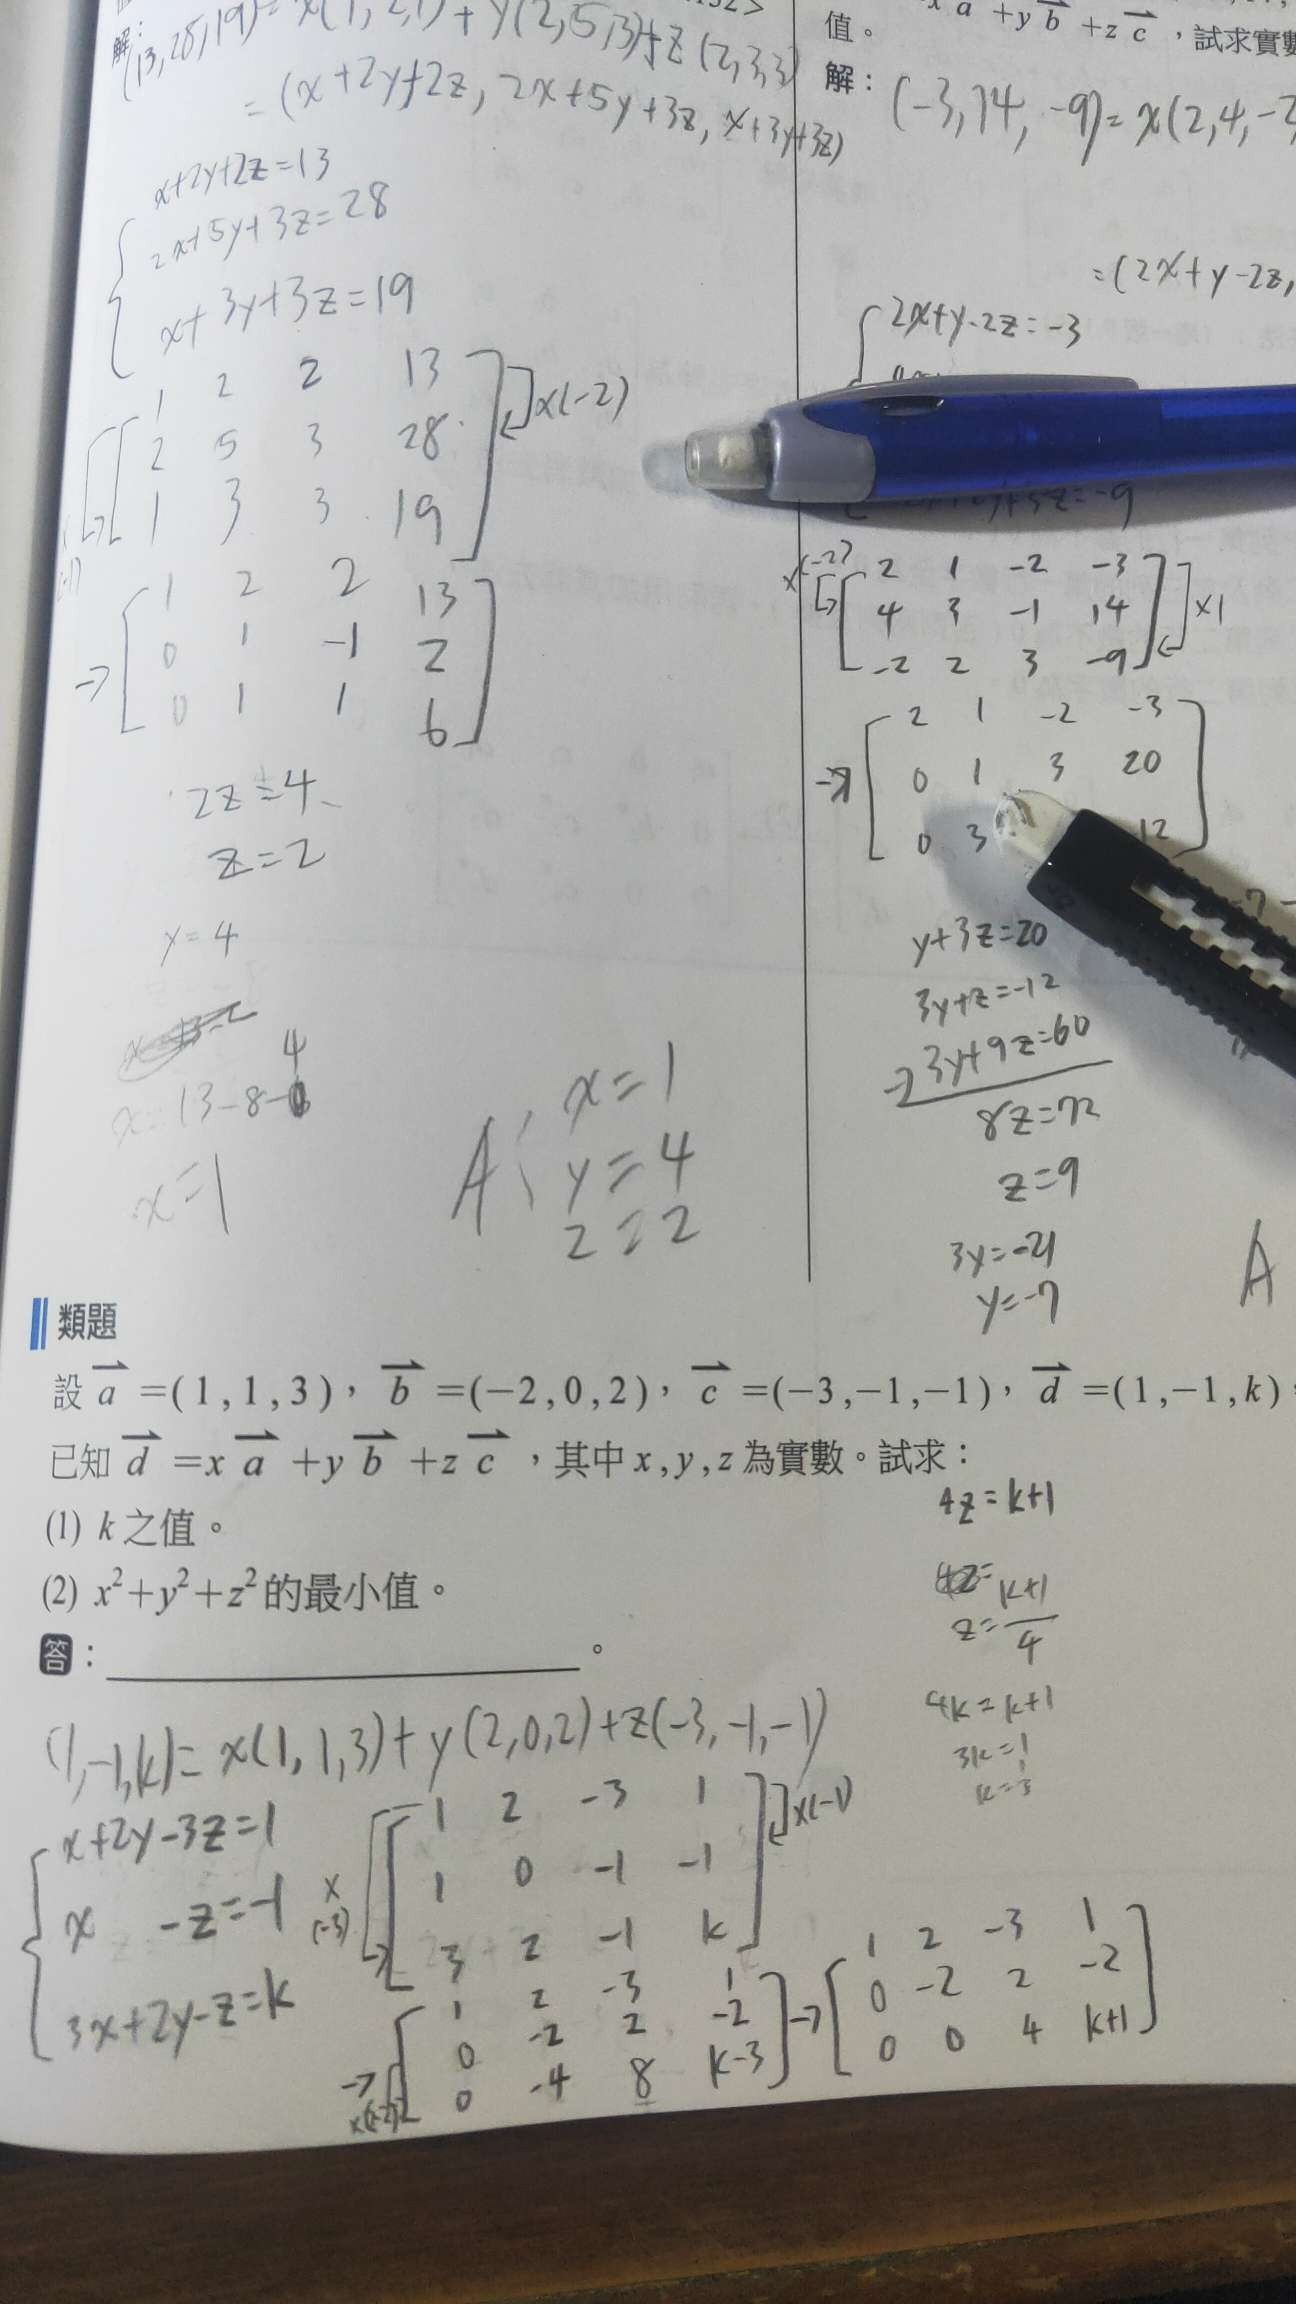 解：
(13,28,19)=x(1,2,1)+y(2,5,3)+z(2,3,3)
=(x+2y+2z, 2x+5y+3z, x+3y+3z)
x+2y+2z=13
2x+5y+3z=28
x+3y+3z=19
1 2 2 13
2 5 3 28
1 3 3 19
x(-2)
→ 1 2 2 13
0 1 -1 2
0 1 1 6
2z=4
z=2
y=4
x=13-8-4
x=1
A: x=1
y=4
z=2
x a +y b +z c ，試求實數
值。
解：
(-3,14,-9)=x(2,4,-2
=(2x+y-2z,
2x+y-2z=-3
+3z=-9
x(-2)
2 1 -2 -3
4 3 -1 14
-2 2 3 -9
x1
→ 2 1 -2 -3
0 1 3 20
0 3 12
y+3z=20
3y+z=-12
-) 3y+9z=60
8z=72
z=9
3y=-21
y=-7
A
類題
設 a =(1,1,3)， b =(−2,0,2)， c =(−3,−1,−1)， d =(1,−1,k)，
已知 d =x a +y b +z c ，其中 x,y,z 為實數。試求：
(1) k 之值。
(2) x²+y²+z² 的最小值。
答：。
4z=k+1
z=k+1/4
4k=k+1
3k=1
(1,-1,k)=x(1,1,3)+y(2,0,2)+z(-3,-1,-1)
x+2y-3z=1
x -z=-1
3x+2y-z=k
x(-3)
1 2 -3 1
1 0 -1 -1
3 2 -1 k
x(-1)
→ 1 2 -3 1
0 -2 2 -2
0 -4 8 k-3
x(-2)
→ 1 2 -3 1
0 -2 2 -2
0 0 4 k+1